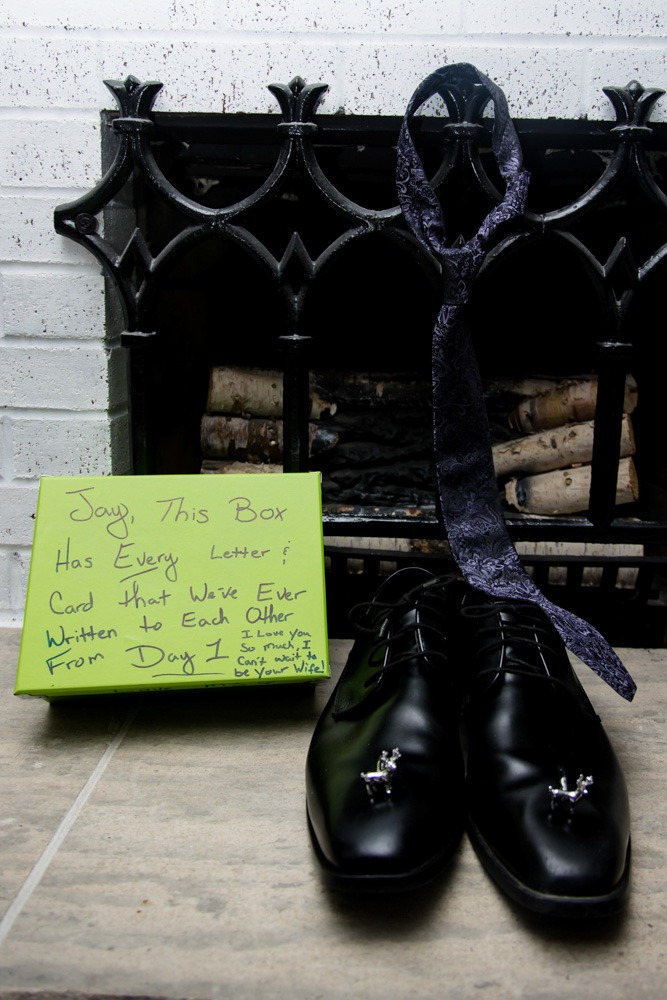 Jay, This Box
Has Every Letter &
Card that We've Ever
Written to Each Other
From Day 1
I Love you
So much, I
Can't wait to
be Your Wife!